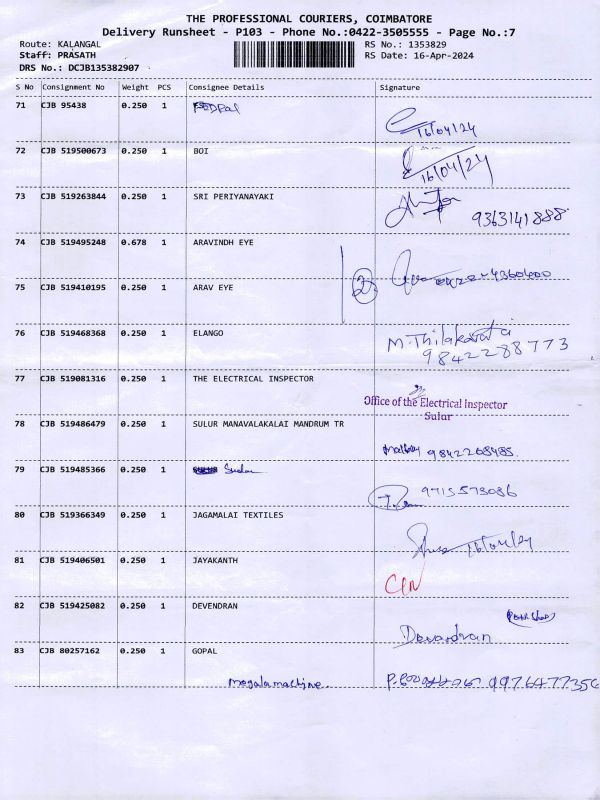 THE PROFESSIONAL COURIERS, COIMBATORE
Delivery Runsheet - P103 - Phone No.:0422-3505555 - Page No.:7
Route: KALANGAL RS No.: 1353829
Staff: PRASATH RS Date: 16-Apr-2024
DRS No.: DCJB135382907
S No Consignment No Weight PCS Consignee Details Signature
71 CJB 95438 0.250 1
16/04/24
72 CJB 519500673 0.250 1 BOI
16/04/24
73 CJB 519263844 0.250 1 SRI PERIYANAYAKI
9363141888
74 CJB 519495248 0.678 1 ARAVINDH EYE
2
75 CJB 519410195 0.250 1 ARAV EYE
76 CJB 519468368 0.250 1 ELANGO
9842288773
77 CJB 519081316 0.250 1 THE ELECTRICAL INSPECTOR
Office of the Electrical Inspector
Sulur
78 CJB 519486479 0.250 1 SULUR MANAVALAKALAI MANDRUM TR
9842268485
79 CJB 519485366 0.250 1
9715573086
80 CJB 519366349 0.250 1 JAGAMALAI TEXTILES
16/04/24
81 CJB 519406501 0.250 1 JAYAKANTH
82 CJB 519425082 0.250 1 DEVENDRAN
83 CJB 80257162 0.250 1 GOPAL
megala machine